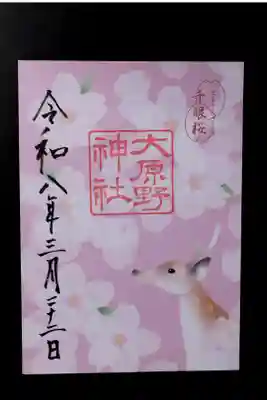 千眼桜
大原野
神社
令和八年三月二十二日